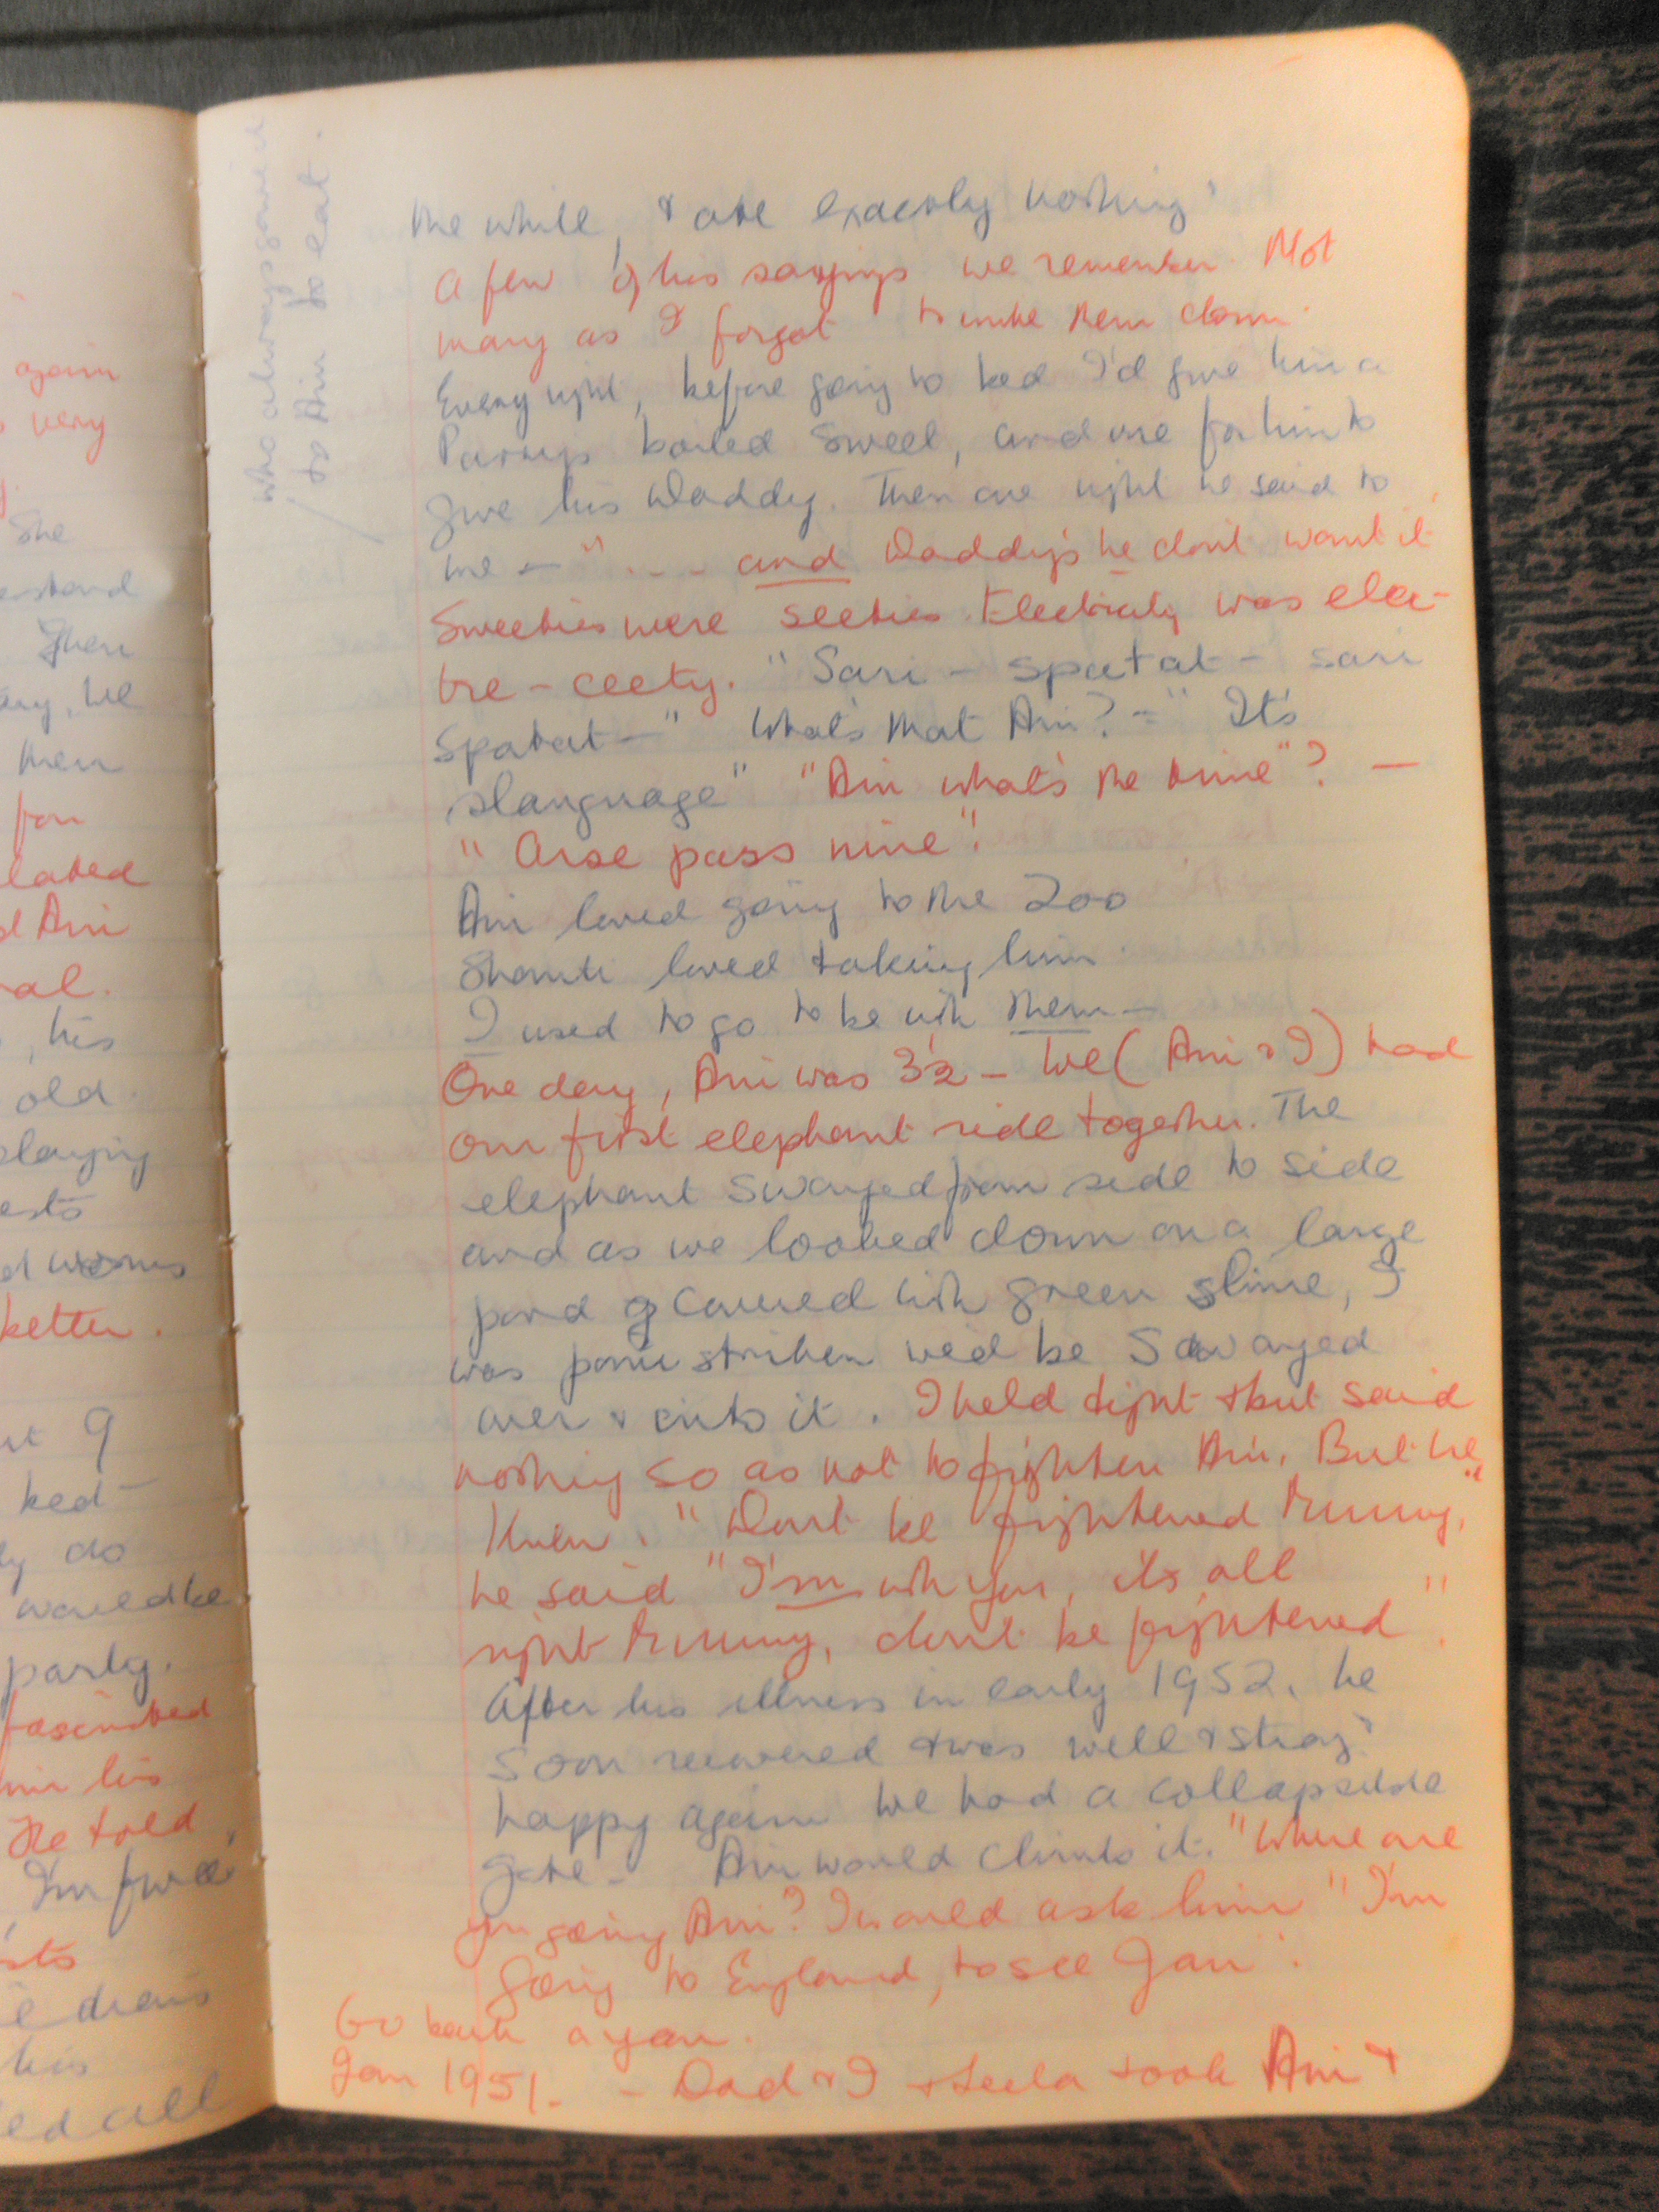 again
very
She
Then
, he
then
for
lated
Ani
al.
, his
old.
playing
ests
worms
better.
at 9
bed -
ly do
would be
party.
fascinated
his
He told
I'm
sts
e drew
his
ed all
who always
to Ani to eat.
the while, & ate exactly nothing.
A few of his sayings we remember. Not
many as I forgot to write them down.
Every night, before going to bed I'd give him a
Parrys boiled sweet, and one for him to
give his Daddy. Then one night he said to
me - "... and Daddy's he don't want it
Sweeties were seeties. Electricity was elec-
tre-ceety. "Sari - spatat - sari
spatat -" What's that Ani? - "It's
slanguage" "Ani what's the time"? -
"Arse pass nine".
Ani loved going to the Zoo
Shanti loved taking him.
I used to go to be with them -
One day, Ani was 3½ - We (Ani & I) had
our first elephant ride together. The
elephant swayed from side to side
and as we looked down on a large
pond covered with green slime, I
was panic striken we'd be swayed
over & into it. I held tight & but said
nothing so as not to frighten Ani. But he
knew. "Dont be frightened Mummy,"
he said "I'm with you, its all
right Mummy, don't be frightened".
After his illness in early 1952, he
soon recovered & was well & strong &
happy again We had a collapsible
gate - Ani would climb it. "Where are
you going Ani? I would ask him "I'm
going to England, to see Jan".
Go back a year.
Jan 1951. - Dad & I & Leela took Ani &